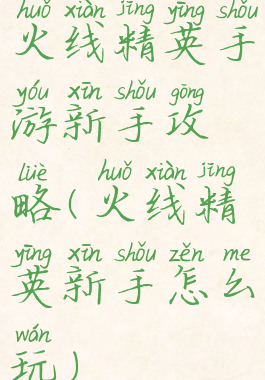 huǒ xiàn jīng yīng shǒu
火线精英手
yóu xīn shǒu gōng
游新手攻
lüè huǒ xiàn jīng
略(火线精
yīng xīn shǒu zěn me
英新手怎么
wán
玩)